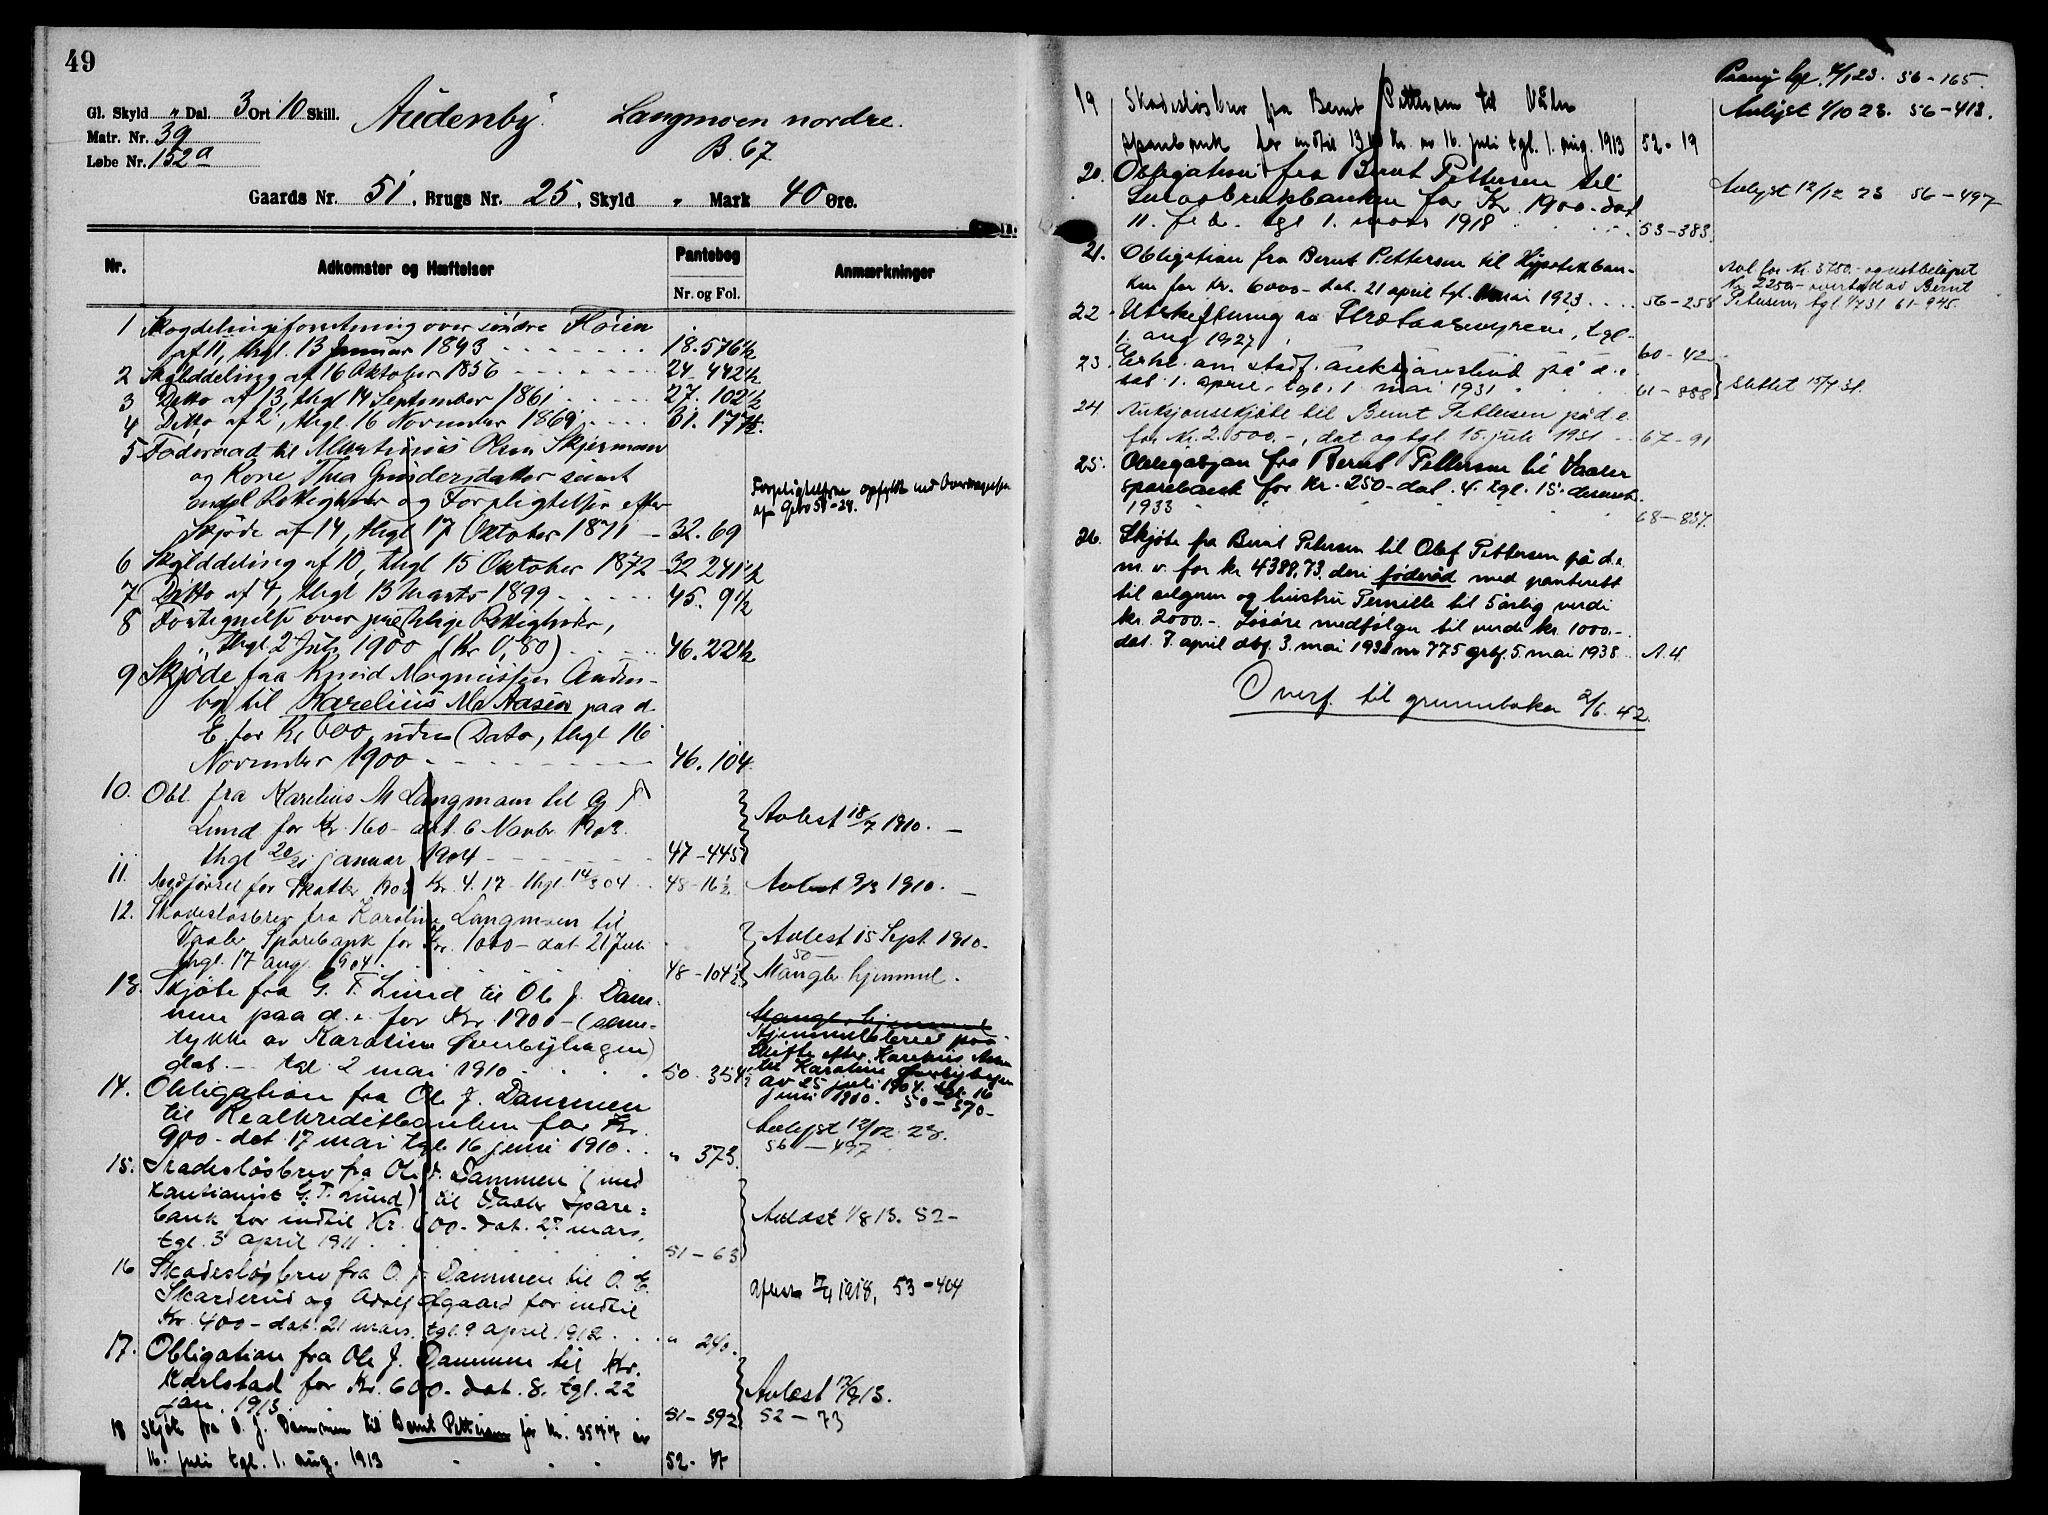 49
Gl. Skyld " Dal. 3 Ort 10 Skill.
Matr. Nr. 39
Løbe Nr. 152a
Audenby. Langmoen nordre.
B. 67
Gaards Nr. 51, Brugs Nr. 25, Skyld " Mark 40 Øre.
Nr. Adkomster og Hæftelser Pantebog Anmærkninger
Nr. og Fol.
1 Skogdelingsforretning over söndre Höien
af 11, thgl. 13 Januar 1843 18. 576½
2 Skylddeling af 16 Oktober 1856 24. 442½
3 Ditto af 13, thgl 14 September 1861 27. 102½
4 Ditto af 2, thgl. 16 November 1869 31. 177½.
5 Föderaad til Martinus Olsen Skjerman
og Kone Thea Gundersdatter samt
endel Rettigheder og Forpligtelser efter
Skjöde af 14, thgl 17 Oktober 1871 32. 69
Forpligtelserne opfyldt ved Overdragelsen
af Gbno 51-24.
6 Skylddeling af 10, thgl 15 Oktober 1872 32 241½
7 Ditto af 4, thgl 13 Marts 1899 45. 9½
8 Fortegnelse over prestelige Rettigheder,
Thgl. 2 Juli 1900 (Kr 0,80) 46. 22½
9 Skjöde fra Knud Magnussen Auden-
by til Karelius M. Aasen paa d.
E. for Kr 600, uden Dato, thgl 16
November 1900 46. 104
10. Obl. fra Karelius M Langmoen til G F
Lund for Kr. 160 - dat. 6 Novbr 1903.
thgl 20/21 januar 1904 47-445
Avlest 18/7 1910.
11. Udförsel for Skatter 1903 Kr. 4.17 thgl. 14/3 04 48-16½
Avlest 9/3 1910.
12. Skadeslösbrev fra Karoline Langmoen til
Vaaler Sparebank for Kr. 1000 - dat 21 Juli
thgl. 17 aug. 1904. 48-104½
Avlest 15 Sept. 1910.
50-
Mangler hjemmel.
13. Skjöte fra G. F. Lund til Ole J. Dam-
men paa d. e. for Kr. 1900 - (sam-
tykke av Karoline Överbyhagen)
dat. - tgl. 2 mai 1910 50-354½
Mangler hjemmel
Hjemmelsbrev paa
Skifte efter Karelius Aasen
til Karoline Överbyhagen
av 25 juli 1904. tgl. 16
juni 1910. 50-370-
14. Obligation fra Ole J. Dammen
til Realkreditbanken for Kr.
900 - dat. 17 mai tgl. 16 juni 1910. " 373.
Avlyst 12/12. 23.
56-497
15. Skadeslösbrev fra Ole J. Dammen (med
Kautionist G. F. Lund) til Vaaler Spare-
bank for indtil Kr. 600 - dat. 27 mars,
tgl. 3 april 1911 51-63
Avlæst 1/8 13. 52-
16 Skadeslösbrev fra O. J. Dammen til O. E.
Skarderud og Adolf Ögaard for indtil
Kr. 400 - dat. 21 mars, tgl. 9 april 1912 " 240.
1918, 53-404
17. Obligation fra Ole J. Dammen til Kr.
Karlstad for Kr. 600 - dat. 8. tgl. 22
jan. 1913. 51-592
Avlæst 13.
52-73
18 Skjöte fra O. J. Dammen til Bernt Pettersen for Kr. 3577 av
16. juli tgl. 1. aug. 1913 52-
19 Skadeslösbrev fra Bernt Pettersen til Våler
sparebank for indtil Kr. av 16. juli tgl. 1. aug. 1913 52-19
Paany tgl. 4/1 23. 56-165.
Avlyst 4/10 23. 56-413.
20. Obligation fra Bernt Pettersen til
Smaabrukbanken for Kr. 1900 - dat.
11. feb. tgl 1. mars 1918 53-383.
Avlyst 12/12 23 56-497
21. Obligation fra Bernt Pettersen til Hypotekban-
ken for kr. 6000 - dat. 21 april tgl. mai 1923 56-258
Avl for Kr. 3750.- og restbeløpet
Kr. 2250.- overtatt av Bernt
Petersen tgl 1/7 31 61-945.
22. Utskiftning av tgl.
1. aug 1927 60-42
23. Erkl. om stadf. auksjonsbud på d. e.
dat. 1. april, tgl. 1. mai 1931 61-888
Slettet 15/7 31.
24 Auksjonsskjöte til Bernt Pettersen på d. e.
for Kr. 2.500.-, dat. og tgl. 15. juli 1931 67-91
25. Obligasjon fra Bernt Pettersen til Vaaler
sparebank for kr. 250 - dat. 4. tgl. 15. desember
1933 68-837.
26. Skjöte fra Bernt Petersen til Olaf Pettersen på d. e.
m. v. for kr 4388,73, deri föderåd med panterett
til selgeren og hustru Pernille til 5årlig verdi
kr. 2000.- Lösöre medfölger til verdi kr. 1000.-
dat. 7. april dbf. 3. mai 1938 nr 775 grbf. 5. mai 1938. A. 4.
Overf. til grunnboken 2/6. 42.